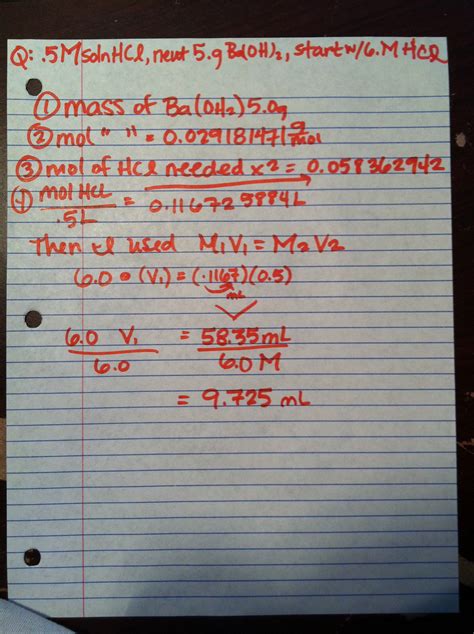 Q: .5M soln HCl, neut 5.g Ba(OH)2, start w/6.M HCl
① mass of Ba(OH2) 5.0g
② mol " " = 0.029181471 g/mol
③ mol of HCl needed x2 = 0.058362942
④ mol HCL / .5L = 0.116725884L
Then I used M1V1 = M2V2
6.0 • (V1) = (.1167)(0.5)
mL
6.0 V1 / 6.0 = 58.35mL / 6.0M
= 9.725 mL